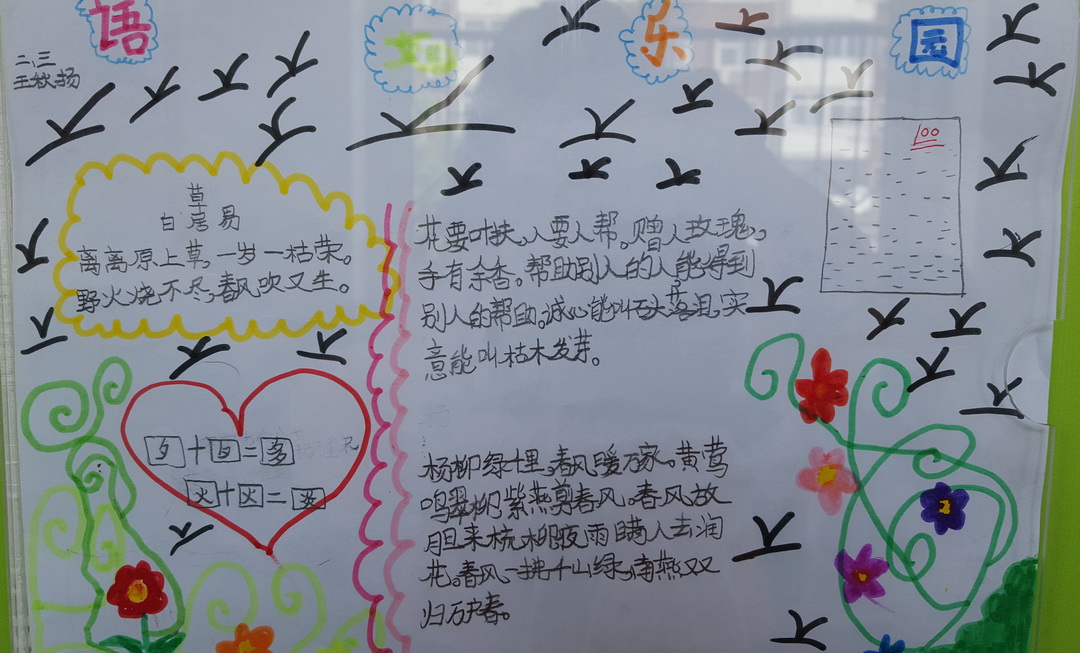 语文乐园
二,三
王秋扬
100
草
白居易
离离原上草,一岁一枯荣。
野火烧不尽,春风吹又生。
夕+夕=多
火+火=炎
花要叶扶,人要人帮。赠人玫瑰,
手有余香。帮助别人的人能得到
别人的帮助。诚心能叫石头落泪,实
意能叫枯木发芽。
杨柳绿千里,春风暖万家。黄莺
鸣翠柳,紫燕剪春风。春风放
胆来梳柳,夜雨瞒人去润
花。春风一拂千山绿,南燕双
归万户春。